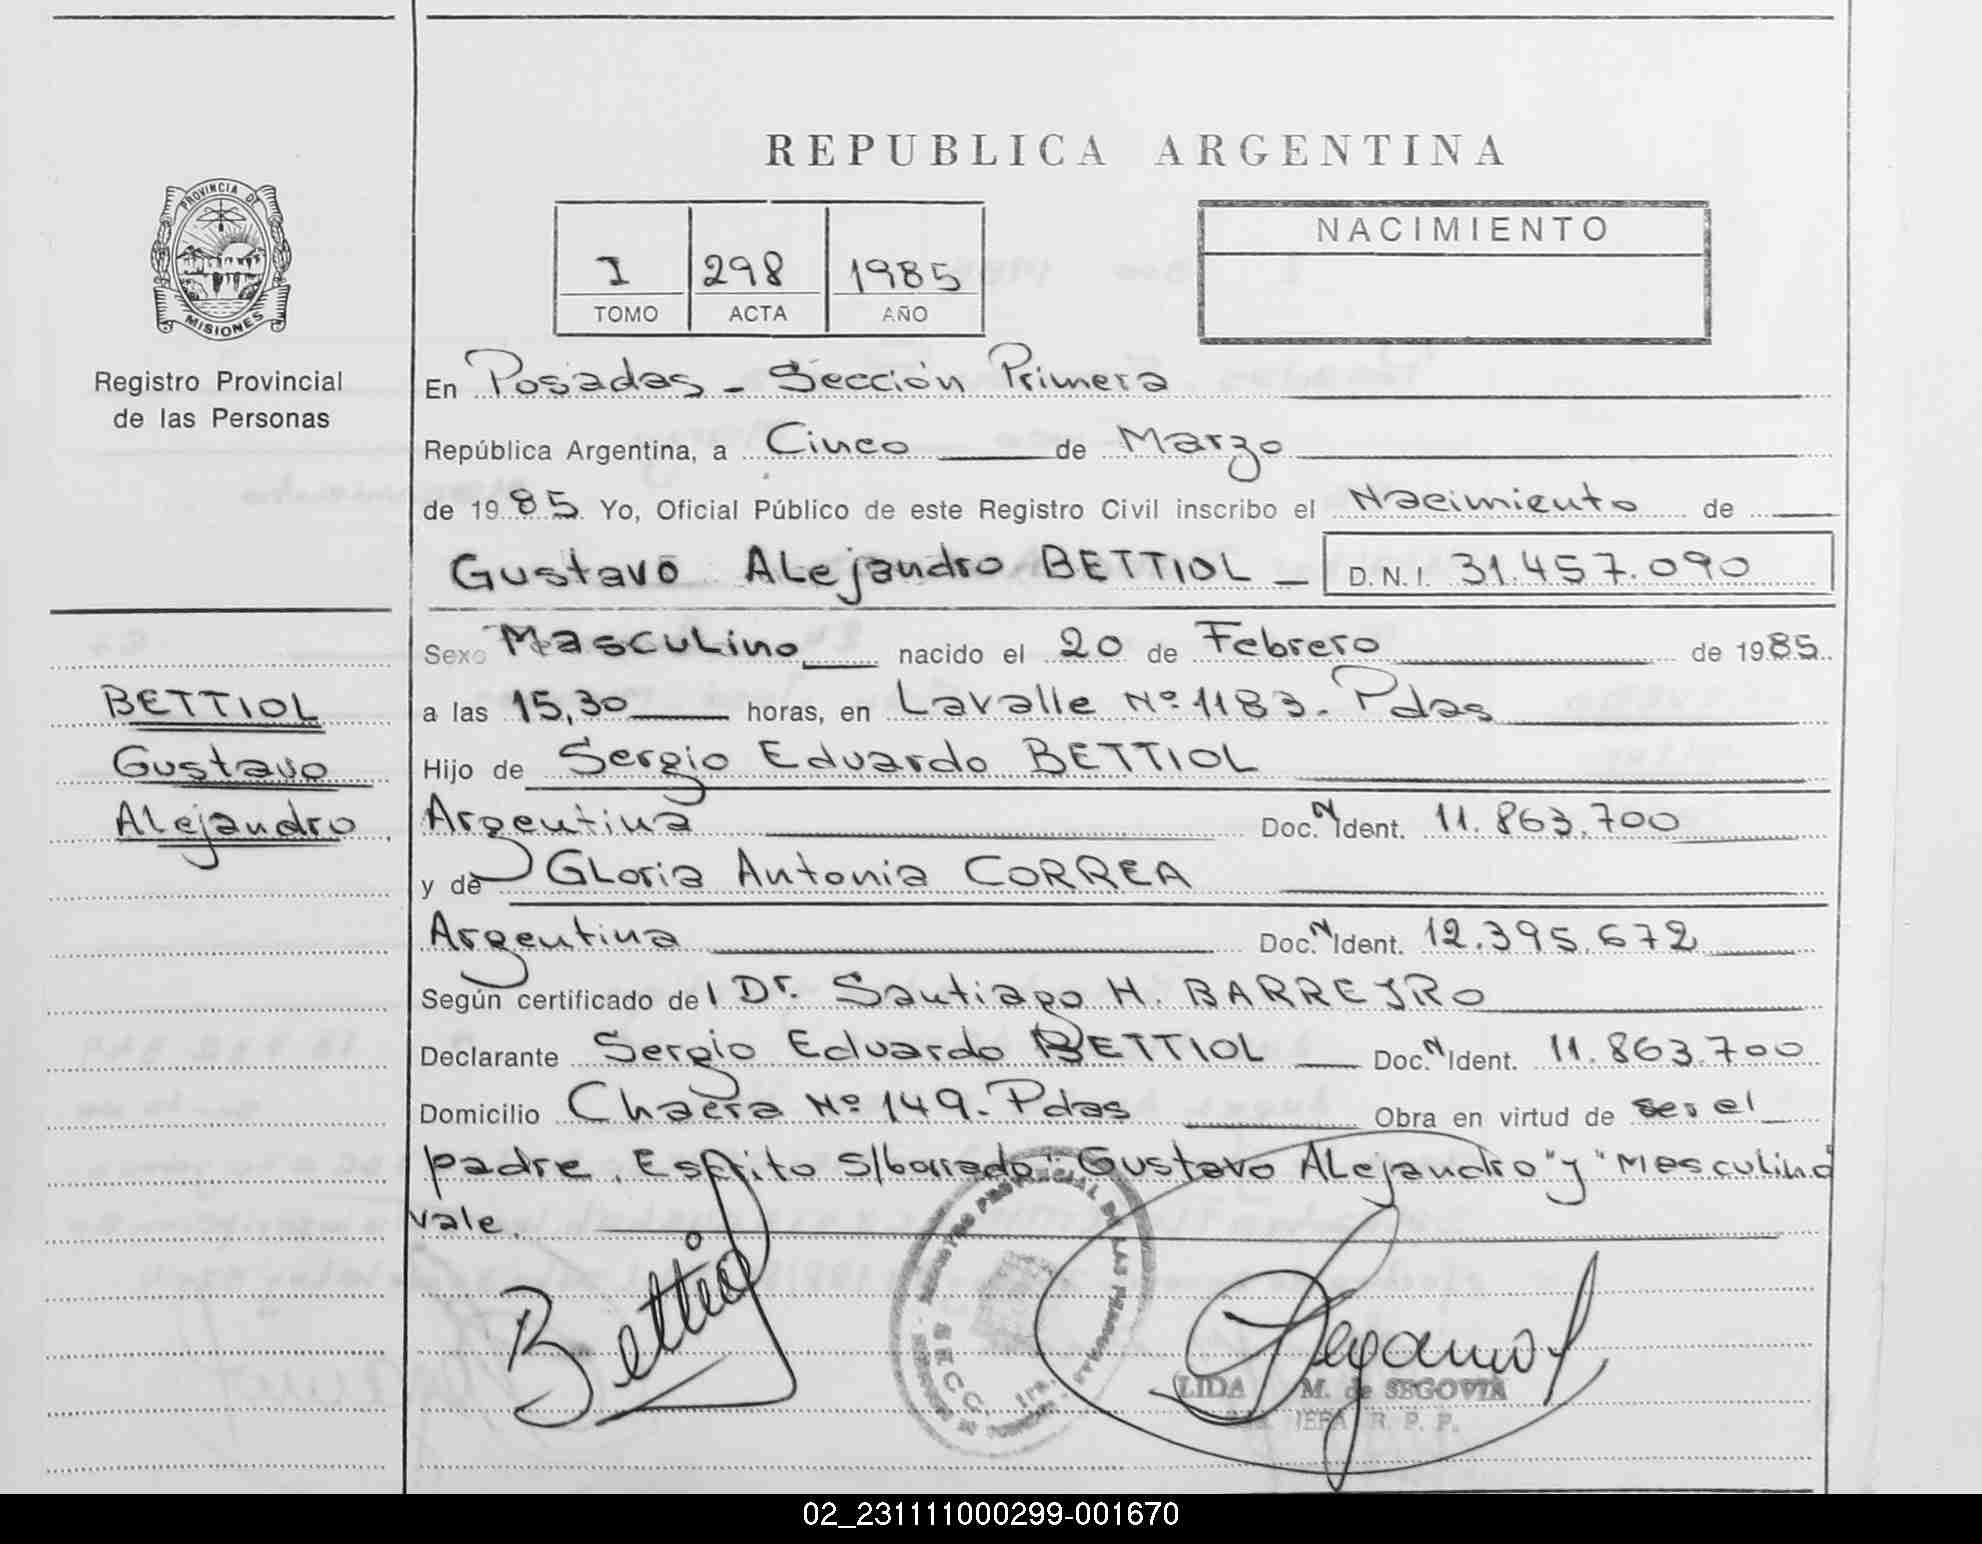 REPUBLICA ARGENTINA
PROVINCIA DE
MISIONES
Registro Provincial
de las Personas
I 298 1985
TOMO ACTA AÑO
NACIMIENTO
En Posadas - Sección Primera
República Argentina, a Cinco de Marzo
de 1985 Yo, Oficial Público de este Registro Civil inscribo el Nacimiento de
Gustavo Alejandro BETTIOL - D.N.I. 31.457.090
Sexo Masculino nacido el 20 de Febrero de 1985
BETTIOL
Gustavo
Alejandro
a las 15,30 horas, en Lavalle Nº 1183. Pdas
Hijo de Sergio Eduardo BETTIOL
Argentina Doc. N Ident. 11.863.700
y de Gloria Antonia CORREA
Argentina Doc. N Ident. 12.395.672
Según certificado del Dr. Santiago H. BARREJRO
Declarante Sergio Eduardo BETTIOL Doc. N Ident. 11.863.700
Domicilio Nº 149. Pdas Obra en virtud de ser el
padre. Escrito s/borrado "Gustavo Alejandro" y "Masculino"
vale.
Bettiol
REGISTRO PROVINCIAL DE LAS PERSONAS
SECC. 1ra.
LIDA M. de SEGOVIA
R. P. P.
02_231111000299-001670